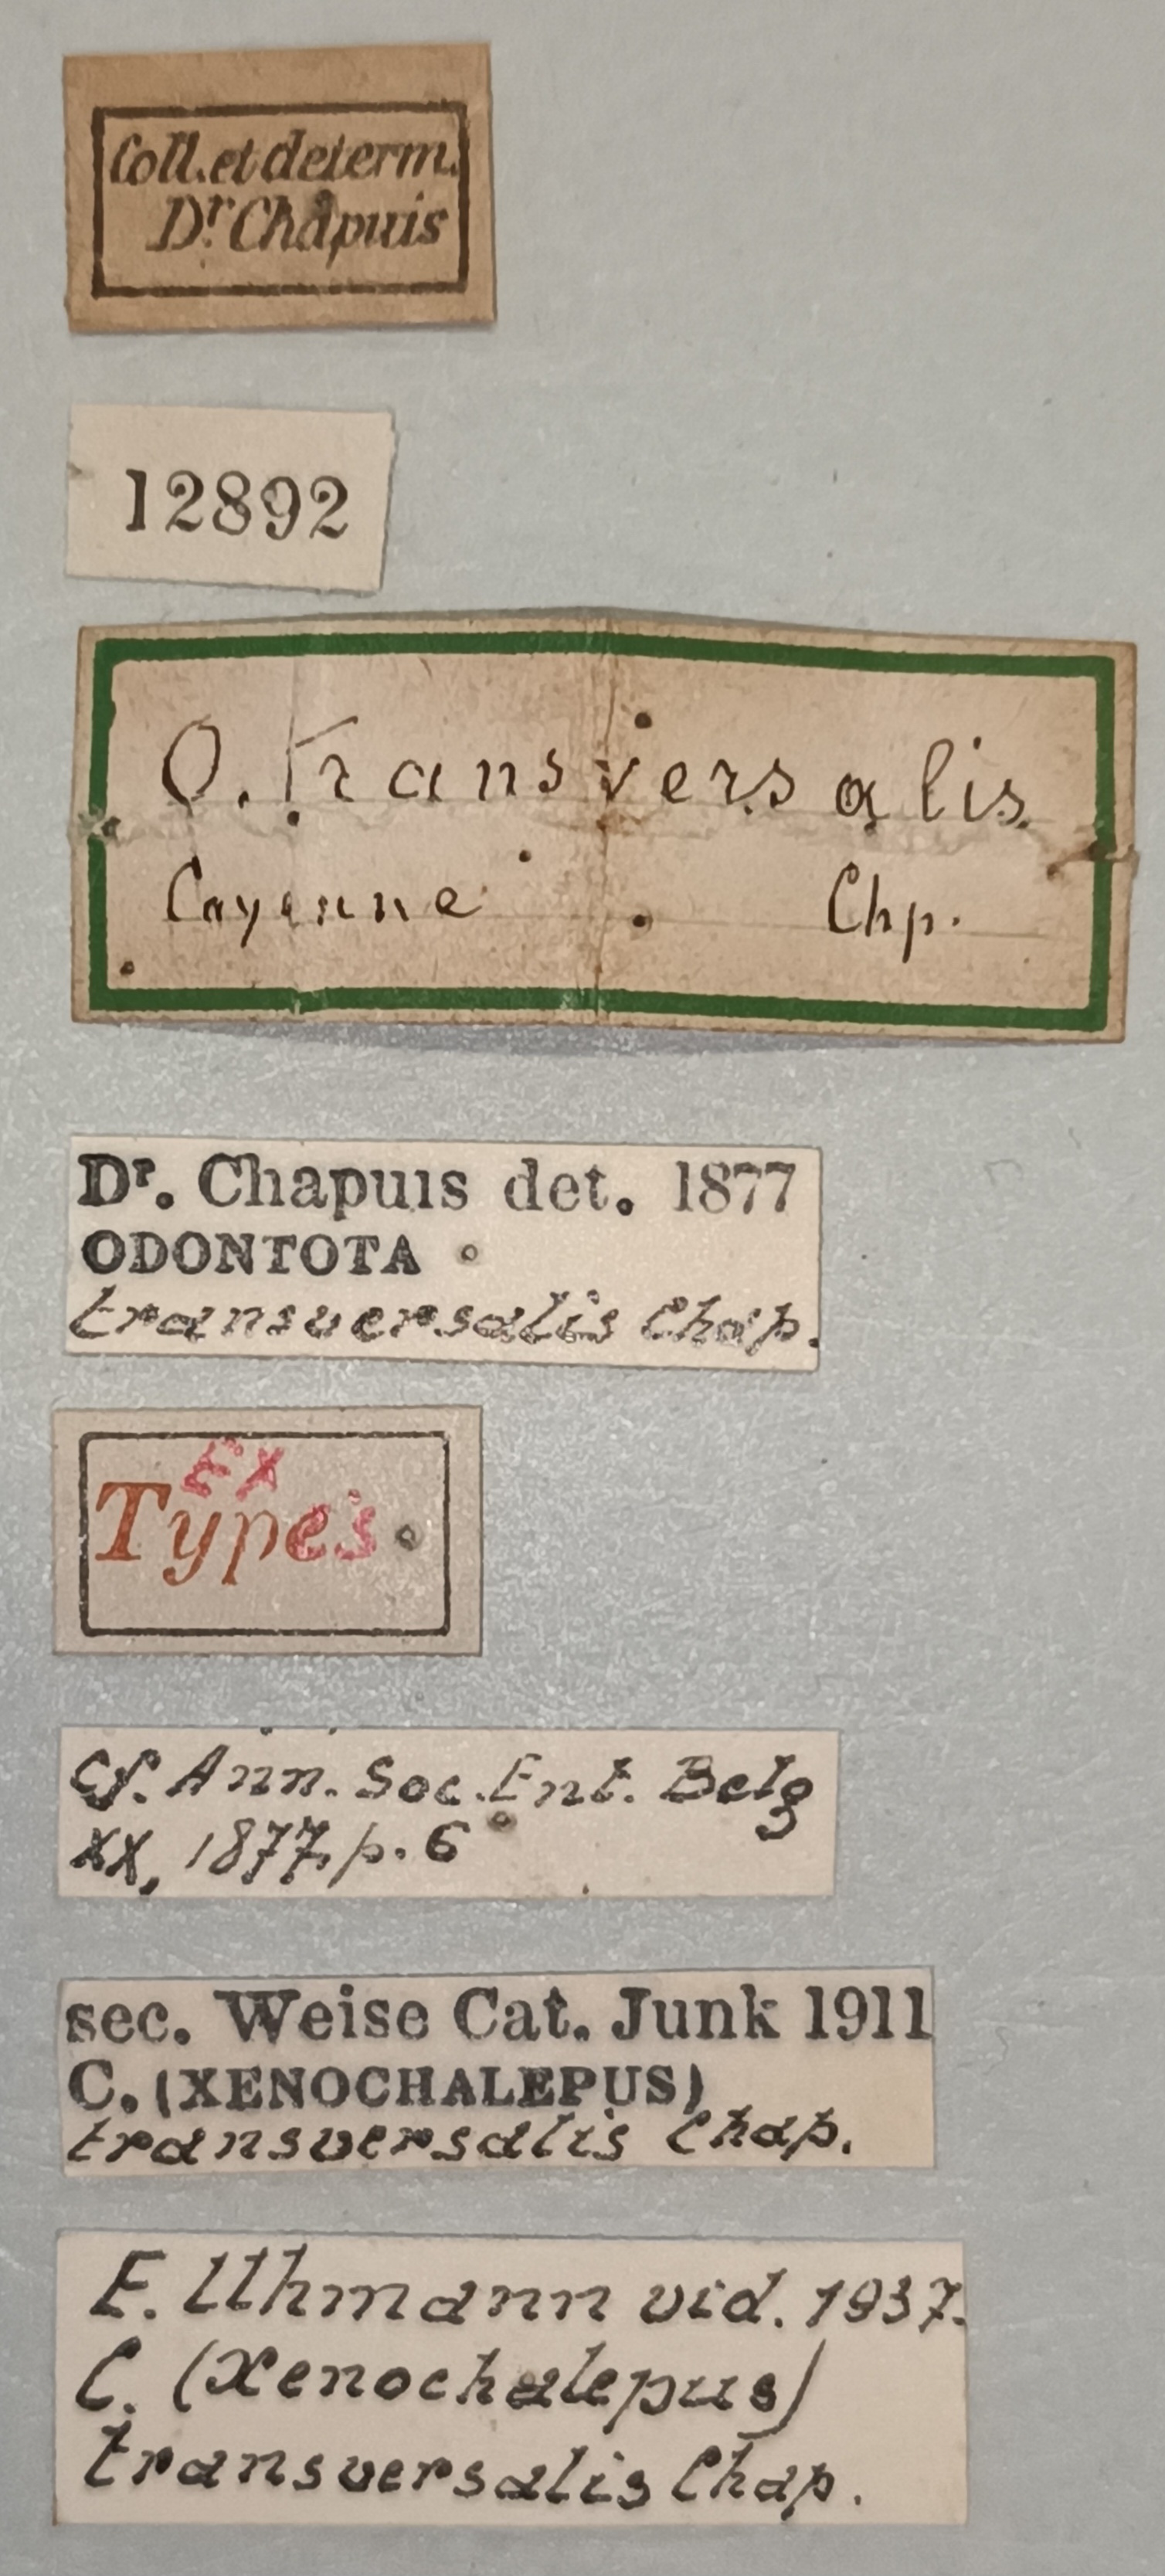 Coll. et determ.
Dr. Chapuis
12892
O. transversalis
Cayenne Chp.
Dr. Chapuis det. 1877
ODONTOTA
transversalis Chap.
Ex
Types
Cf. Ann. Soc. Ent. Belg
XX, 1877, p. 6
sec. Weise Cat. Junk 1911
C. (XENOCHALEPUS)
transversalis Chap.
E. Uhmann vid. 1937.
C. (Xenochalepus)
transversalis Chap.